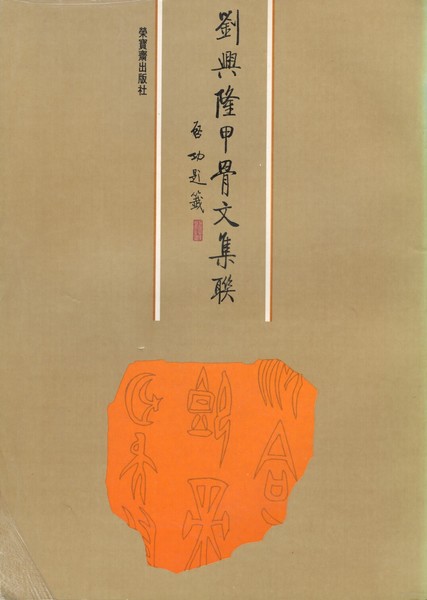 劉興隆甲骨文集聯
啓功題籤
榮寶齋出版社